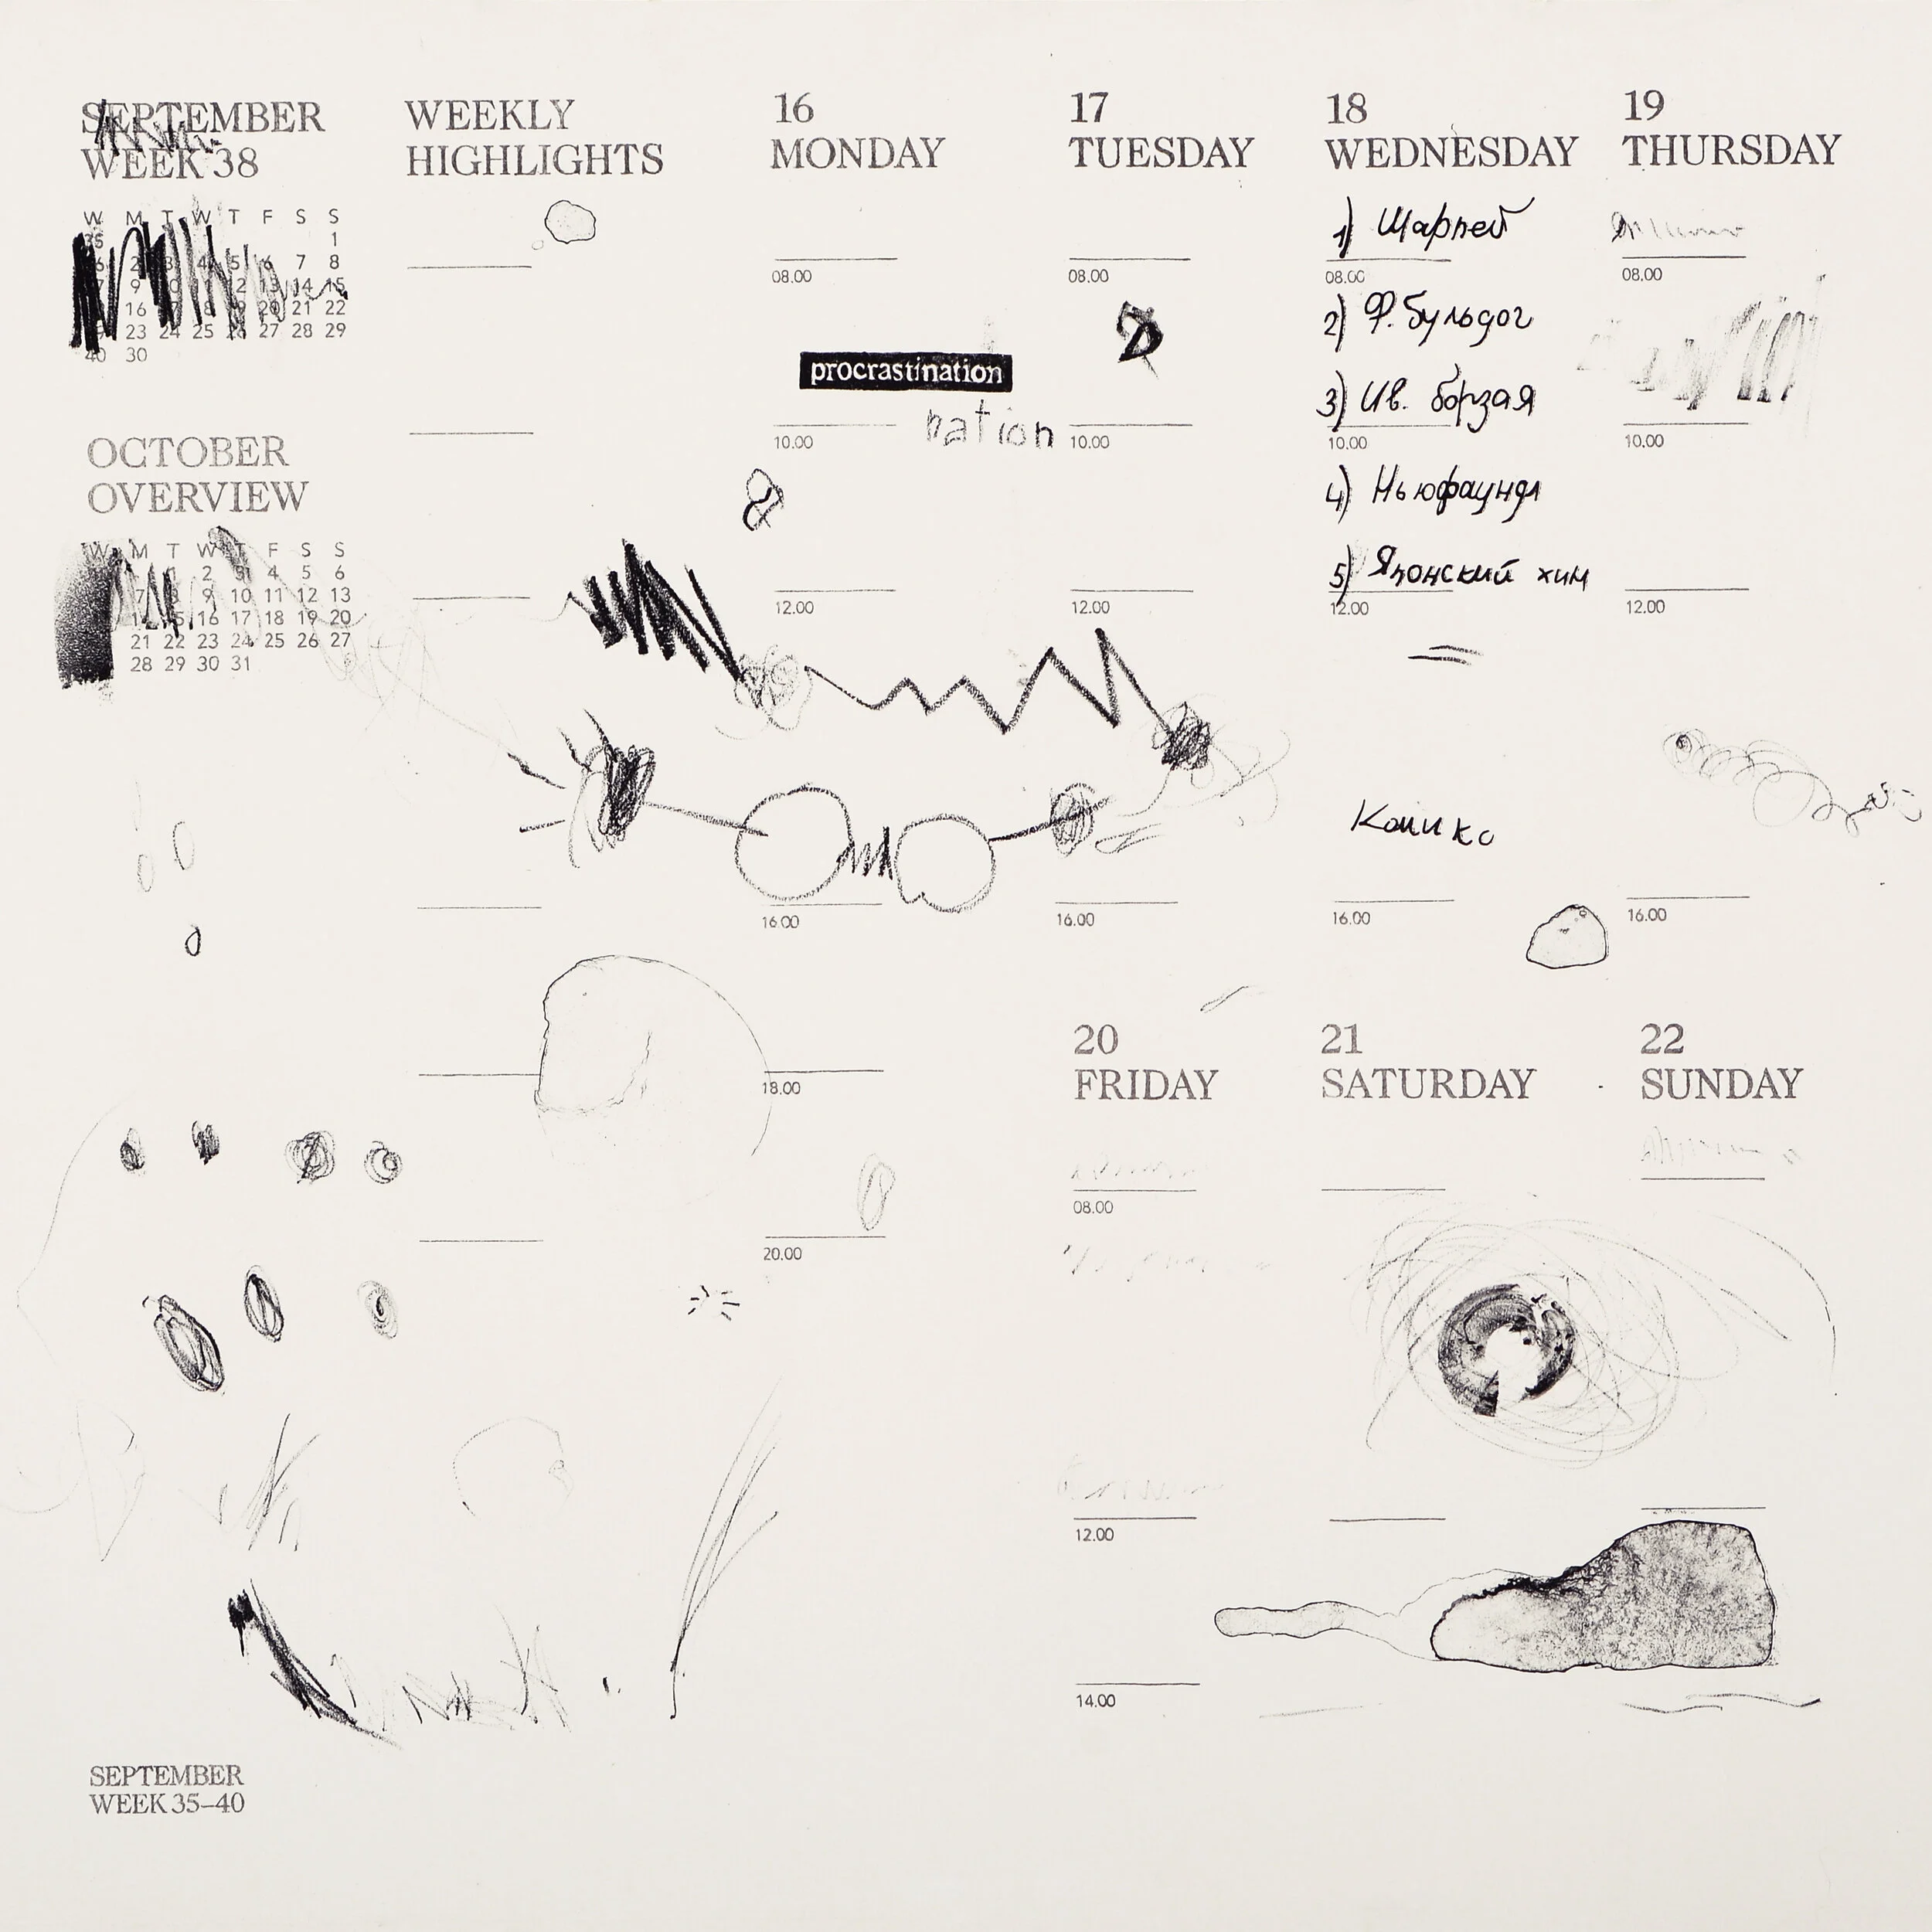 SEPTEMBER
WEEK 38
W M T W T F S S
35 1
2 3 4 5 6 7 8
9 10 11 12 13 14 15
16 17 18 19 20 21 22
23 24 25 26 27 28 29
40 30
OCTOBER
OVERVIEW
W M T W T F S S
1 2 3 4 5 6
7 8 9 10 11 12 13
14 15 16 17 18 19 20
21 22 23 24 25 26 27
28 29 30 31
SEPTEMBER
WEEK 35–40
WEEKLY
HIGHLIGHTS
16
MONDAY
08.00
procrastination
nation
10.00
12.00
16.00
18.00
20.00
17
TUESDAY
08.00
10.00
12.00
16.00
18
WEDNESDAY
1) Шарпей
08.00
2) Ф. бульдог
3) Ив. борзая
10.00
4) Ньюфаундл
5) Японский хин
12.00
16.00
19
THURSDAY
08.00
10.00
12.00
16.00
20
FRIDAY
08.00
12.00
14.00
21
SATURDAY
22
SUNDAY